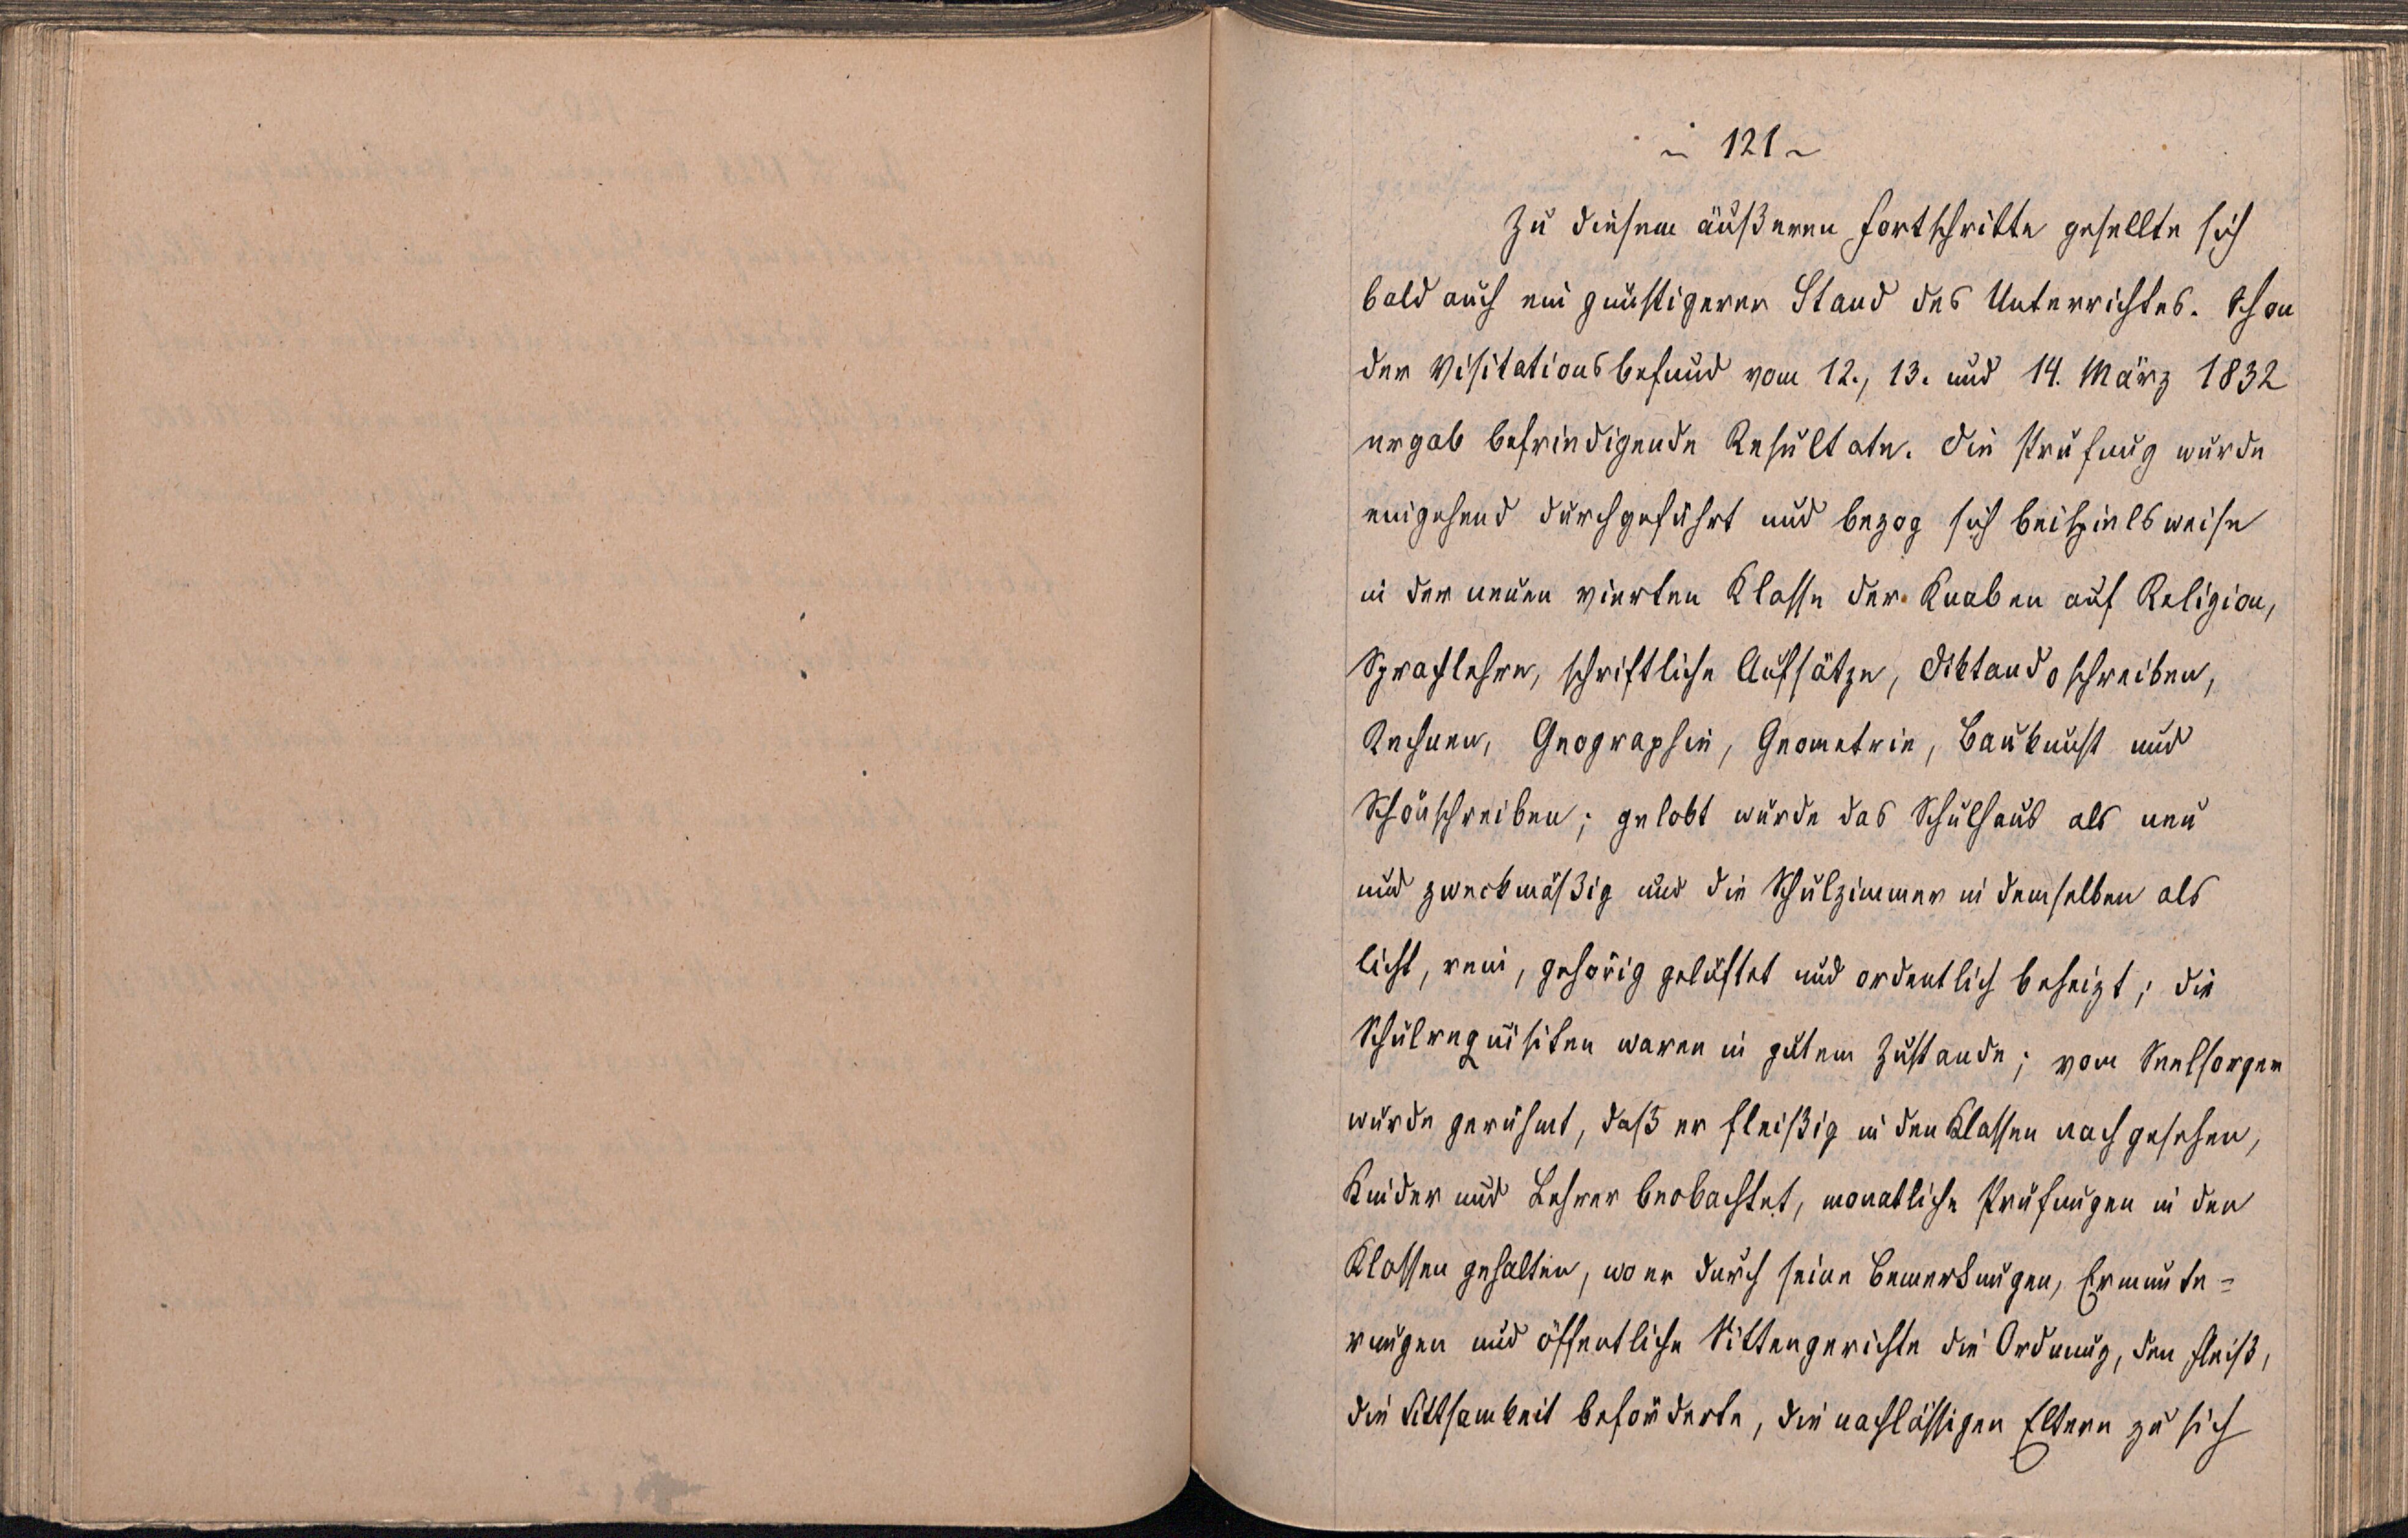 ~ 121 ~
Zu diesem äußeren Fortschritte gesellte sich
bald auch ein günstigerer Stand des Unterrichtes. Schon
der Visitationsbefund vom 12., 13. und 14. März 1832
ergab befriedigende Resultate. Die Prüfung wurde
eingehend durchgeführt und bezog sich beispielsweise
in der neuen vierten Klasse der Knaben auf Religion,
Sprachlehre, schriftliche Aufsätze, Diktandoschreiben,
Rechnen, Geographie, Geometrie, Baukunst und
Schönschreiben; gelobt wurde das Schulhaus als neu
und zweckmäßig und die Schulzimmer in demselben als
licht, rein, gehörig gelüftet und ordentlich beheizt; die
Schulrequisiten waren in gutem Zustande; vom Seelsorger
wurde gerühmt, daß er fleißig in den Klassen nachgesehen,
Kinder und Lehrer beobachtet, monatliche Prüfungen in den
Klassen gehalten, wo er durch seine Bemerkungen, Ermunte=
rungen und öffentliche Sittengerichte die Ordnung, den Fleiß,
die Sittsamkeit beförderte, die nachlässigen Eltern zu sich